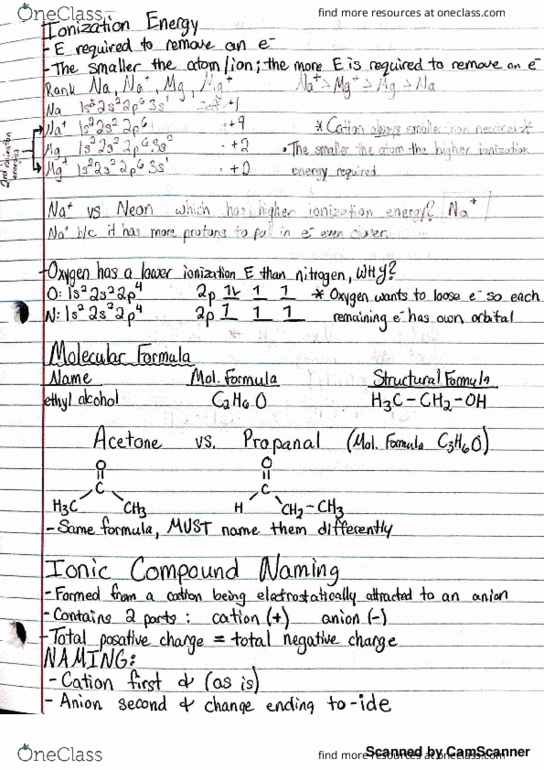 OneClass
find more resources at oneclass.com
Ionization Energy
- E required to remove an e⁻
- The smaller the atom/ion; the more E is required to remove an e⁻
Rank Na, Na⁺, Mg, Mg⁺ Na⁺ > Mg⁺ > Mg > Na
Na 1s²2s²2p⁶3s¹ +1
Na⁺ 1s²2s²2p⁶ +9 * Cation always smaller than neutral *
Mg 1s²2s²2p⁶3s² +2 • The smaller the atom the higher ionization
Mg⁺ 1s²2s²2p⁶3s¹ energy required
Na⁺ vs Neon which has higher ionization energy? Na⁺
Na⁺ b/c it has more protons to pull in e⁻ even closer
- Oxygen has a lower ionization E than nitrogen, WHY?
O: 1s²2s²2p⁴ 2p 1 1 * Oxygen wants to loose e⁻ so each
N: 1s²2s²2p⁴ 2p 1 1 1 remaining e⁻ has own orbital
Molecular Formula
Name Mol. Formula Structural Formula
ethyl alcohol C₂H₆O H₃C-CH₂-OH
Acetone vs. Propanal (Mol. Formula C₃H₆O)
O O
C C
H₃C CH₃ H CH₂-CH₃
- Same formula, MUST name them differently
Ionic Compound Naming
- Formed from a cation being electrostatically attracted to an anion
- Contains 2 parts: cation (+) anion (-)
- Total posative charge = total negative charge
NAMING:
- Cation first & (as is)
- Anion second & change ending to -ide
OneClass
find more resources at oneclass.com
Scanned by CamScanner